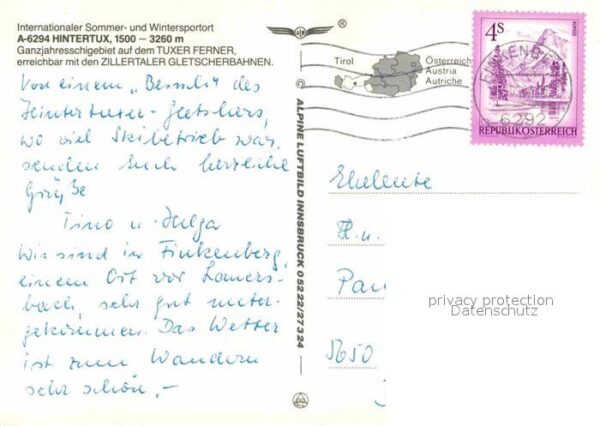 Internationaler Sommer- und Wintersportort
A-6294 HINTERTUX, 1500 – 3260 m
Ganzjahresschigebiet auf dem TUXER FERNER,
erreichbar mit den ZILLERTALER GLETSCHERBAHNEN.
Von einem „Besuch" des
Hintertuxer-Gletshers,
wo viel Skibetrieb war,
senden Euch herzliche
Grüße
Tino u. Helga
Wir sind in Finkenberg,
einem Ort vor Lanersbach,
sehr gut untergekommen.
Das Wetter
ist zum Wandern
sehr schön,-
ALPINE LUFTBILD INNSBRUCK 05222/27324
®
Tirol
Österreich
Austria
Autriche
4S
ALMSEE
REPUBLIK ÖSTERREICH
FINKENBERG
6292
Eheleute
H. u.
Pau
5650
privacy protection
Datenschutz